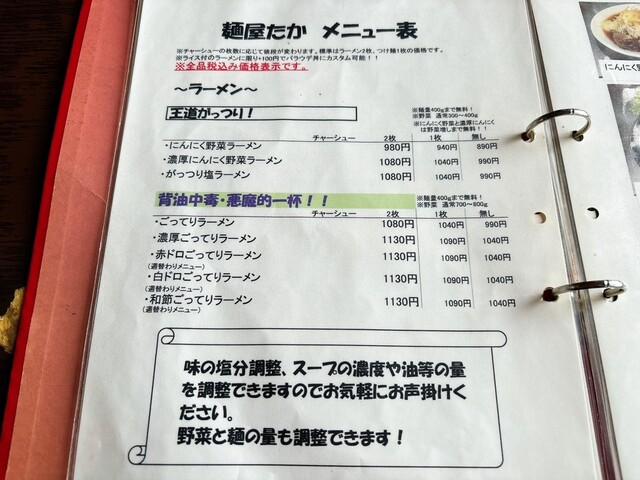 麺屋たか メニュー表
※チャーシューの枚数に応じて値段が変わります。標準はラーメン2枚、つけ麺1枚の価格です。
※ライス付のラーメンに限り+100円でバラウデ丼にカスタム可能！！
※全品税込み価格表示です。
～ラーメン～
王道がっつり！
※麺量400gまで無料！
※野菜 通常300～400g
※にんにく野菜と濃厚にんにく
は野菜増しまで無料！！
チャーシュー 2枚 1枚 無し
・にんにく野菜ラーメン 980円 940円 890円
・濃厚にんにく野菜ラーメン 1080円 1040円 990円
・がっつり塩ラーメン 1080円 1040円 990円
背油中毒・悪魔的一杯！！
※麺量400gまで無料！
※野菜 通常700～800g
チャーシュー 2枚 1枚 無し
・ごってりラーメン 1080円 1040円 990円
・濃厚ごってりラーメン 1130円 1090円 1040円
・赤ドロごってりラーメン 1130円 1090円 1040円
(週替わりメニュー)
・白ドロごってりラーメン 1130円 1090円 1040円
(週替わりメニュー)
・和節ごってりラーメン 1130円 1090円 1040円
(週替わりメニュー)
味の塩分調整、スープの濃度や油等の量
を調整できますのでお気軽にお声掛けく
ださい。
野菜と麺の量も調整できます！
にんにく野